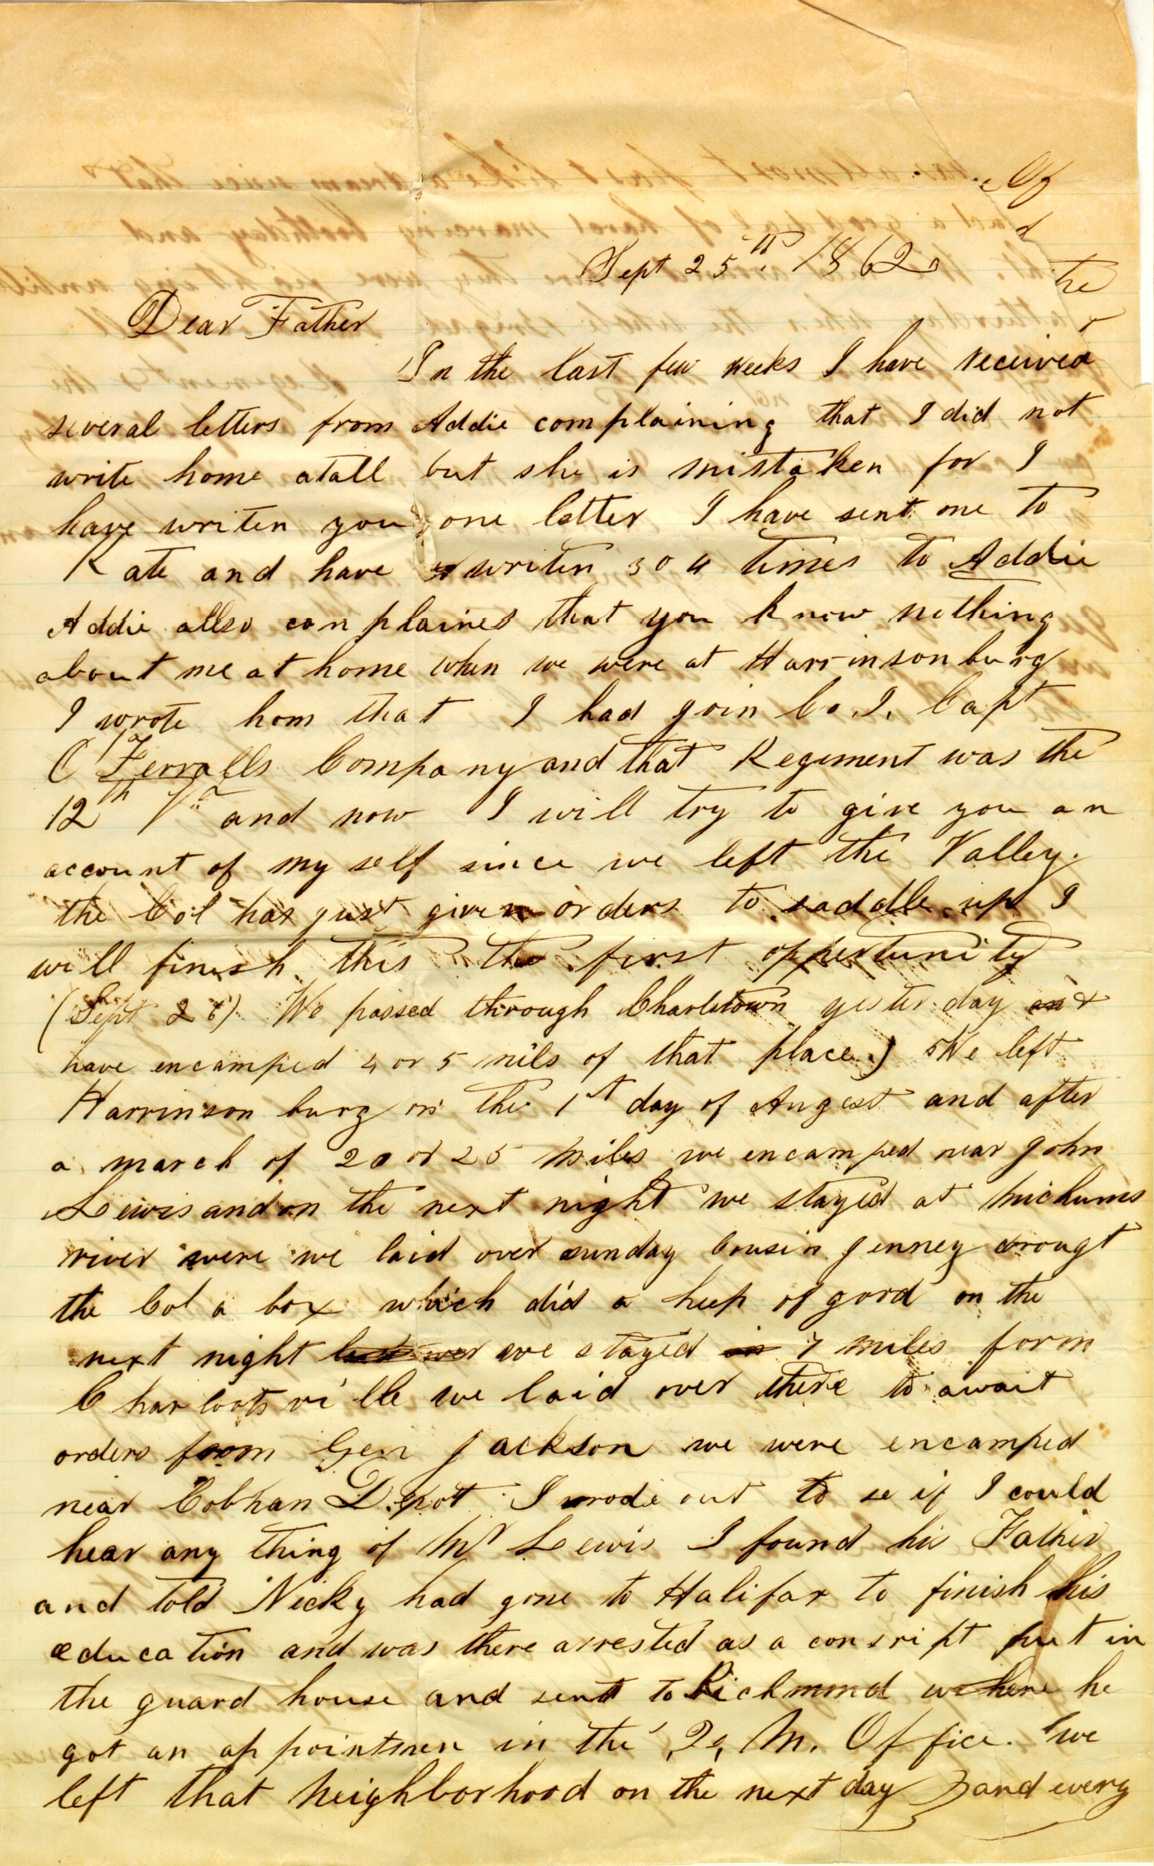 Sept 25th 1862
Dear Father
In the last few weeks I have received
several letters from Addie complaining that I did not
write home atall but she is mistaken for I
have writen you one letter I have sent one to
Kate and have writen 3 o 4 times to Addie
Addie allso complaines that you know nothing
about me at home when we were at Harrinsonburg
I wrote hom that I had join Co. I. Capt
O Ferralls Company and that Regiment was the
12th Va and now I will try to give you an
account of my self since we left the Valley.
the Col has just given orders to saddle up I
will finish this the first oppertunity
(Sept 28) We passed through Charlstown yesterday &
have encamped 4 or 5 mils of that place.) We left
Harrinson burg on the 1st day of Augest and after
a march of 20 or 25 miles we encamped near John
Lewis and on the next night we stayed at Michums
river were we laid over sunday Cousin Jenney brougt
the Col a box which did a heep of good on the
next night we stayed 7 miles form
Charlootsville we laid over there to await
orders from Gen Jackson we were encamped
near Cobhan Depot I wrode out to se if I could
hear any thing of Mr Lewis I found his Father
and told Nicky had gone to Halifax to finish his
education and was there arrested as a consript put in
the guard house and sent to Richmond where he
got an appointmen in the Q. M. Office. we
left that neighborhood on the next day and every